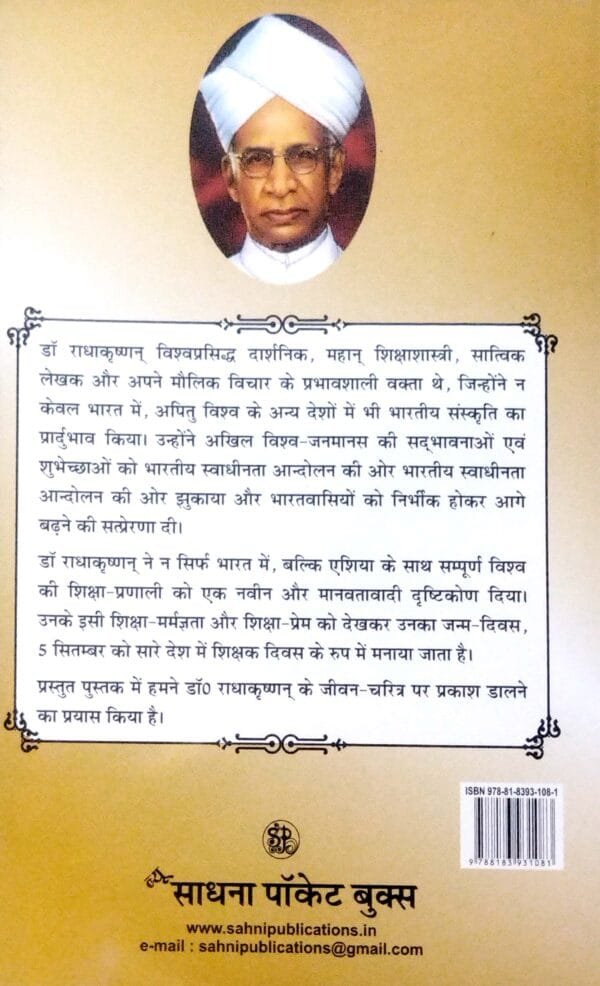 डॉ राधाकृष्णन् विश्वप्रसिद्ध दार्शनिक, महान् शिक्षाशास्त्री, सात्विक
लेखक और अपने मौलिक विचार के प्रभावशाली वक्ता थे, जिन्होंने न
केवल भारत में, अपितु विश्व के अन्य देशों में भी भारतीय संस्कृति का
प्रार्दुभाव किया। उन्होंने अखिल विश्व-जनमानस की सद्‌भावनाओं एवं
शुभेच्छाओं को भारतीय स्वाधीनता आन्दोलन की ओर भारतीय स्वाधीनता
आन्दोलन की ओर झुकाया और भारतवासियों को निर्भीक होकर आगे
बढ़ने की सत्प्रेरणा दी।
डॉ राधाकृष्णन् ने न सिर्फ भारत में, बल्कि एशिया के साथ सम्पूर्ण विश्व
की शिक्षा-प्रणाली को एक नवीन और मानवतावादी दृष्टिकोण दिया।
उनके इसी शिक्षा-मर्मज्ञता और शिक्षा-प्रेम को देखकर उनका जन्म-दिवस,
5 सितम्बर को सारे देश में शिक्षक दिवस के रुप में मनाया जाता है।
प्रस्तुत पुस्तक में हमने डॉ0 राधाकृष्णन् के जीवन-चरित्र पर प्रकाश डालने
का प्रयास किया है।
ISBN 978-81-8393-108-1
9788183931081
SP
साधना पॉकेट बुक्स
www.sahnipublications.in
e-mail : sahnipublications@gmail.com